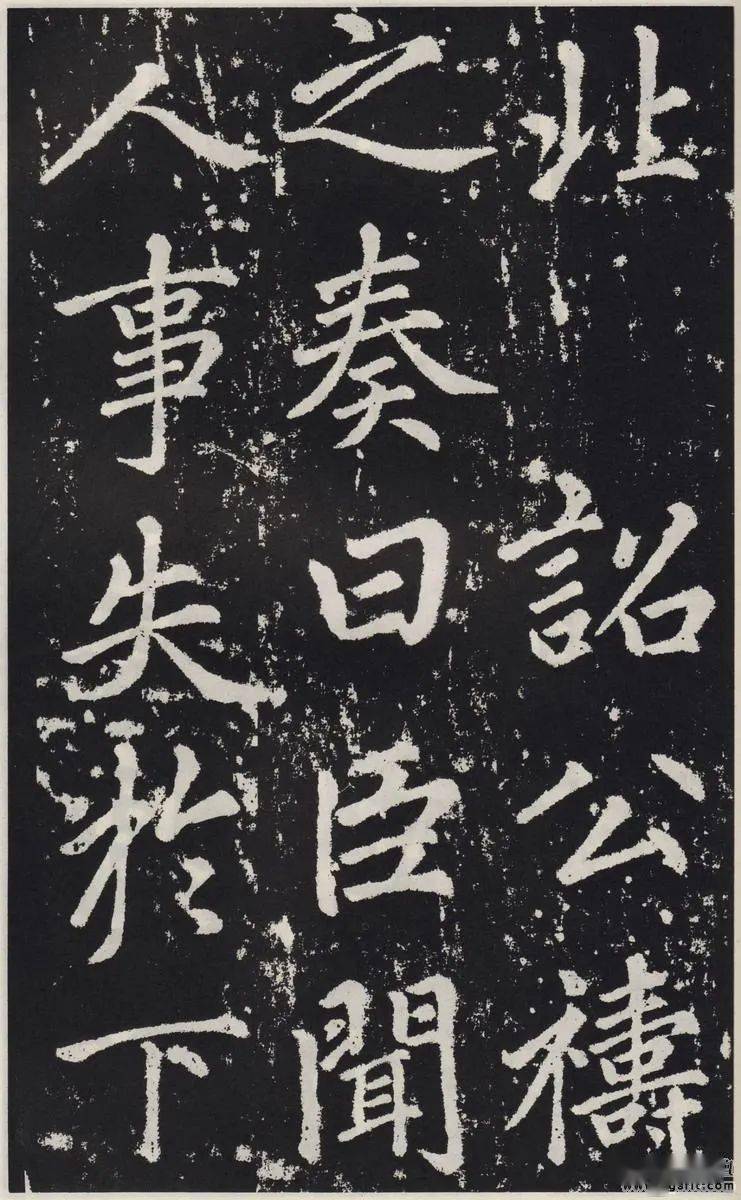 北 詔公禱
之奏曰臣聞
人事失於下